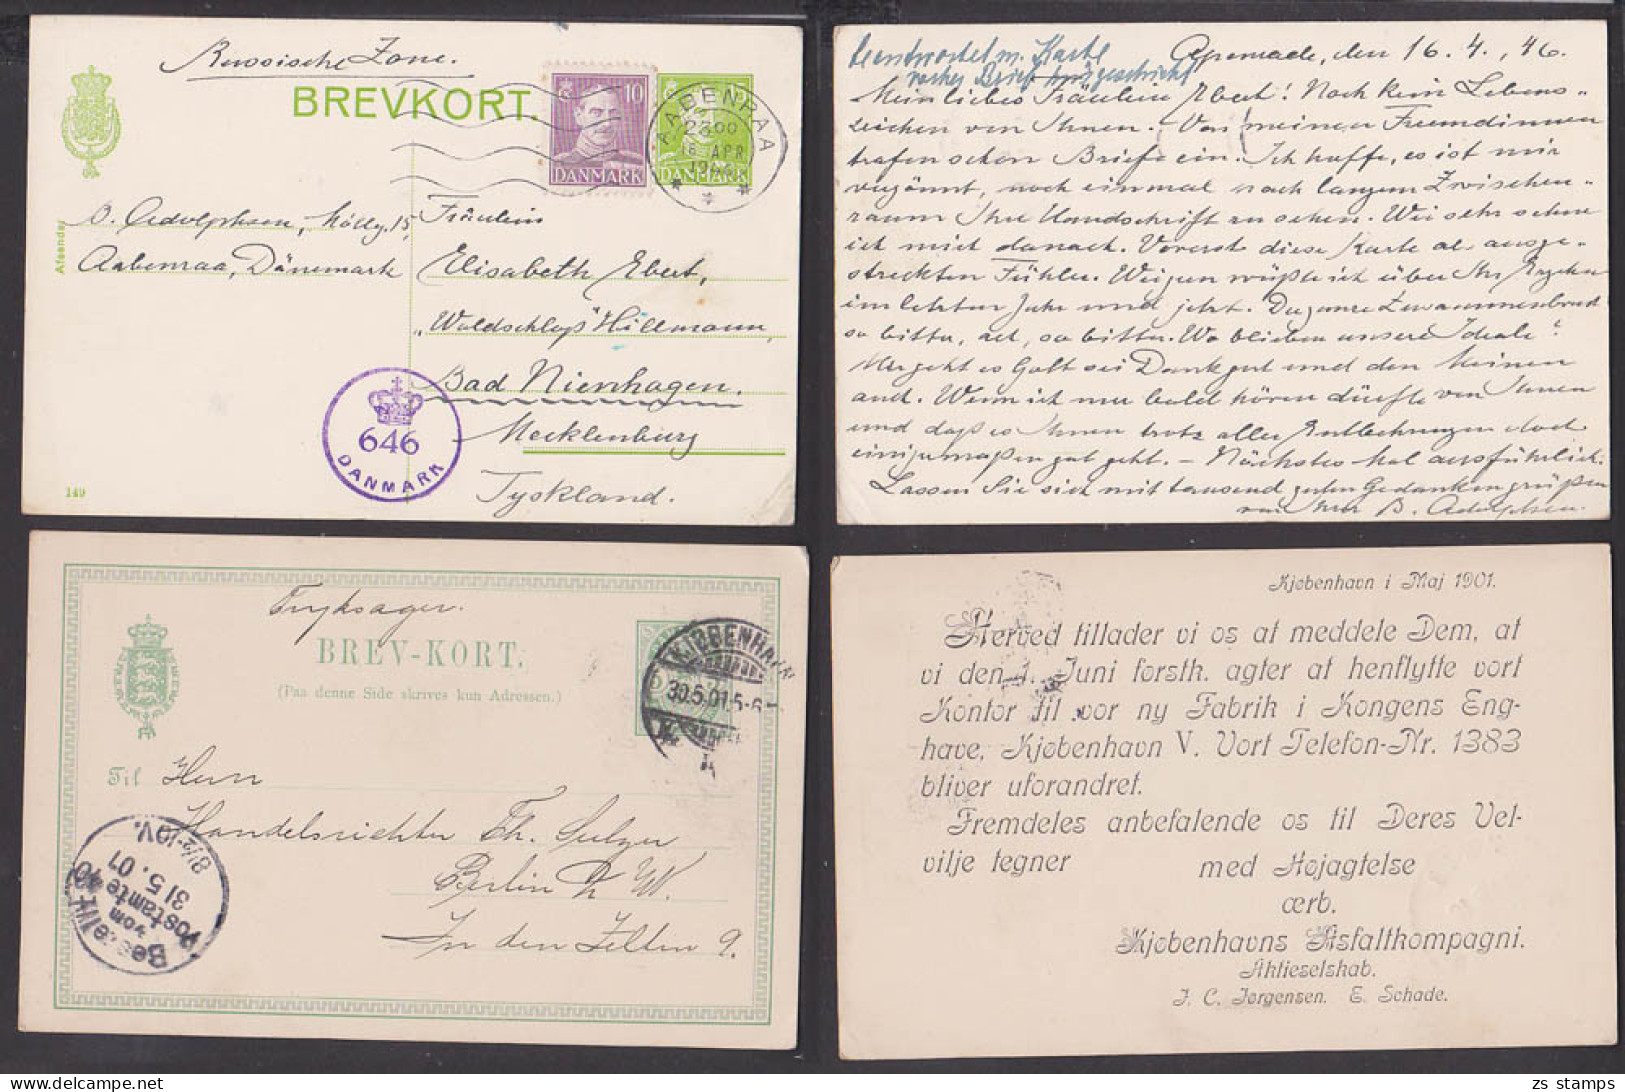 Russische Zone.
BREVKORT.
10
DANMARK
DANMARK
AABENRAA
2300
16 APR
Afsender
B. Adolphsen, Mølleg. 15,
Aabenraa, Dänemark
Fräulein
Elisabeth Ebert,
"Waldschloß" Hillmann,
Bad Nienhagen.
Mecklenburg
Tyskland.
646
DANMARK
149
beantwortet m. Karte
Brief
Apenrade, den 16. 4., 46.
Mein liebes Fräulein Ebert! Noch kein Lebens-
zeichen von Ihnen. Von meinen Freundinnen
trafen schon Briefe ein. Ich hoffe, es ist mir
vergönnt, noch einmal nach langem Zwischen-
raum Ihre Handschrift zu sehen. Wie sehr sehne
ich mich danach. Vorerst diese Karte als ausge-
streckten Fühler. Wie gern wüßte ich über Ihr Ergehen
im letzten Jahr und jetzt. Der ganze Zusammenbruch
so bitter, ach, so bitter. Wo blieben unsere Ideale?
Mir geht es Gott sei Dank gut und den Meinen
auch. Wenn ich nur bald hören dürfte von Ihnen
und daß es Ihnen trotz aller Entbehrungen doch
einigermaßen gut geht. - Nächstes Mal ausführlich.
Lassen Sie sich mit tausend guten Gedanken grüßen
von Ihrer B. Adolphsen.
Tryksager.
BREV-KORT.
(Paa denne Side skrives kun Adressen.)
KJØBENHAVN
30.5.01.5-6
Til Herrn
Handelsrichter Th. Sulzer
Berlin N. W.
In den Zelten 9.
Bestellt
vom
Postamte 40
31 5. 01
8½-10V.
Kjøbenhavn i Maj 1901.
Herved tillader vi os at meddele Dem, at
vi den 1. Juni forstk. agter at henflytte vort
Kontor til vor ny Fabrik i Kongens Eng-
have, Kjøbenhavn V. Vort Telefon-Nr. 1383
bliver uforandret.
Fremdeles anbefalende os til Deres Vel-
vilje tegner med Højagtelse
ærb.
Kjøbenhavns Asfaltkompagni.
Aktieselskab.
J. C. Jørgensen. E. Schade.
zs stamps